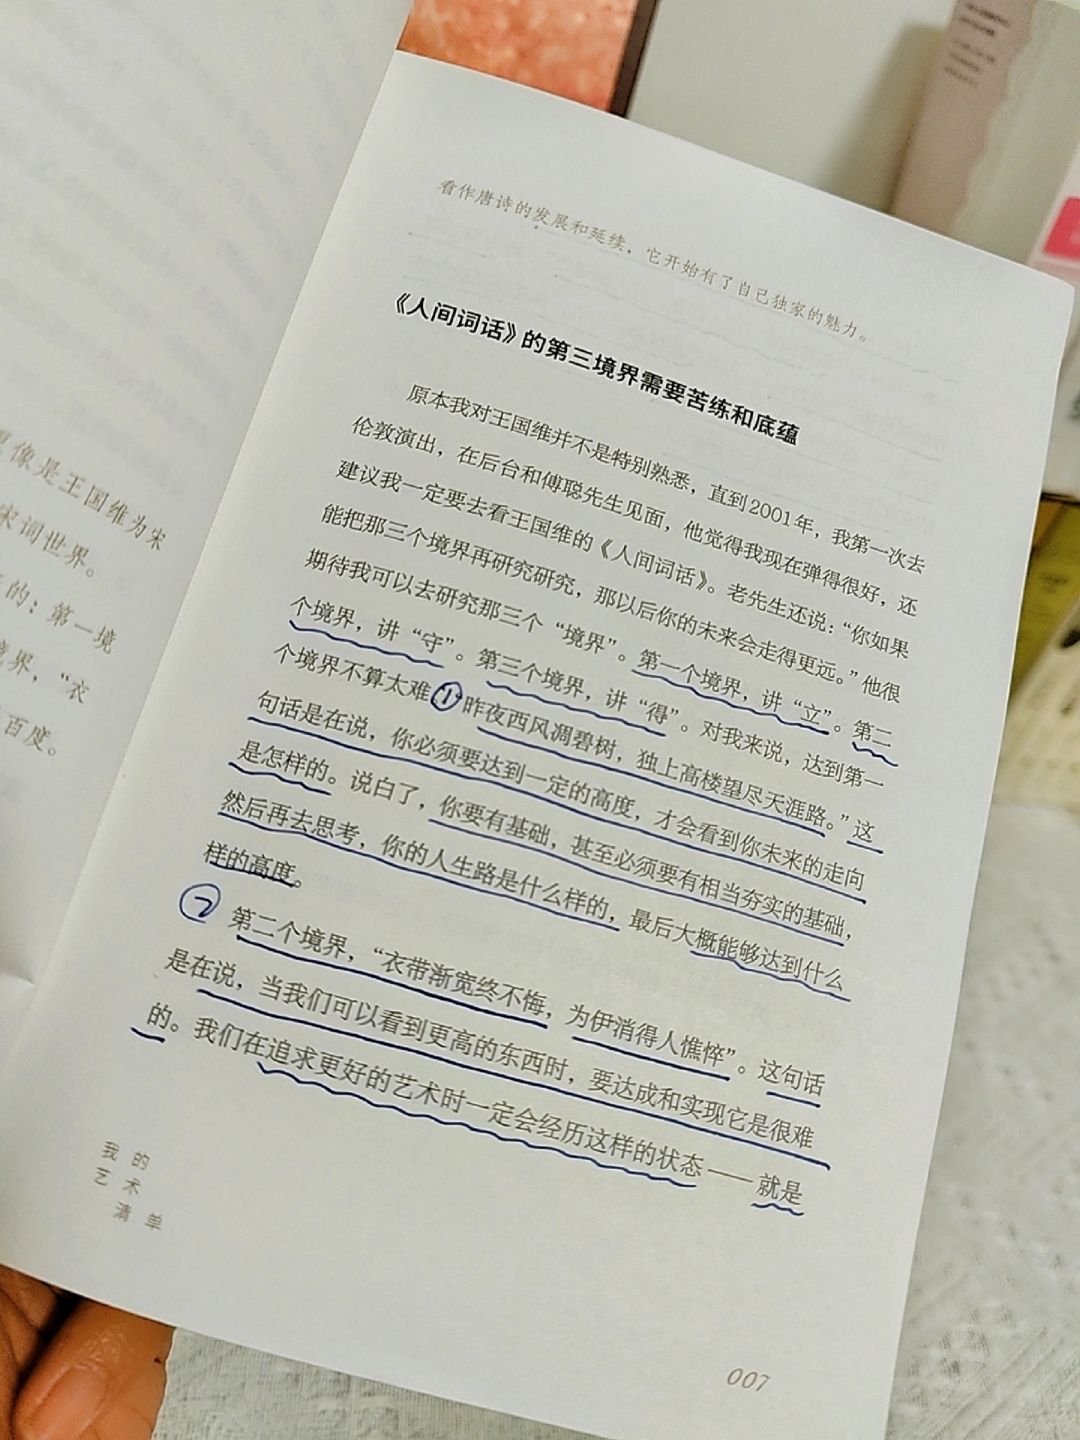 像是王国维为宋
宋词世界。
的：第一境
界，“衣
百度。
看作唐诗的发展和延续，它开始有了自己独家的魅力。
《人间词话》的第三境界需要苦练和底蕴
原本我对王国维并不是特别熟悉，直到2001年，我第一次去
伦敦演出，在后台和傅聪先生见面，他觉得我现在弹得很好，还
建议我一定要去看王国维的《人间词话》。老先生还说：“你如果
能把那三个境界再研究研究，那以后你的未来会走得更远。”他很
期待我可以去研究那三个“境界”。第一个境界，讲“立”。第二
个境界，讲“守”。第三个境界，讲“得”。对我来说，达到第一
个境界不算太难①昨夜西风凋碧树，独上高楼望尽天涯路。”这
句话是在说，你必须要达到一定的高度，才会看到你未来的走向
是怎样的。说白了，你要有基础，甚至必须要有相当夯实的基础，
然后再去思考，你的人生路是什么样的，最后大概能够达到什么
样的高度。
②第二个境界，“衣带渐宽终不悔，为伊消得人憔悴”。这句话
是在说，当我们可以看到更高的东西时，要达成和实现它是很难
的。我们在追求更好的艺术时一定会经历这样的状态——就是
我的
艺术
清单
007